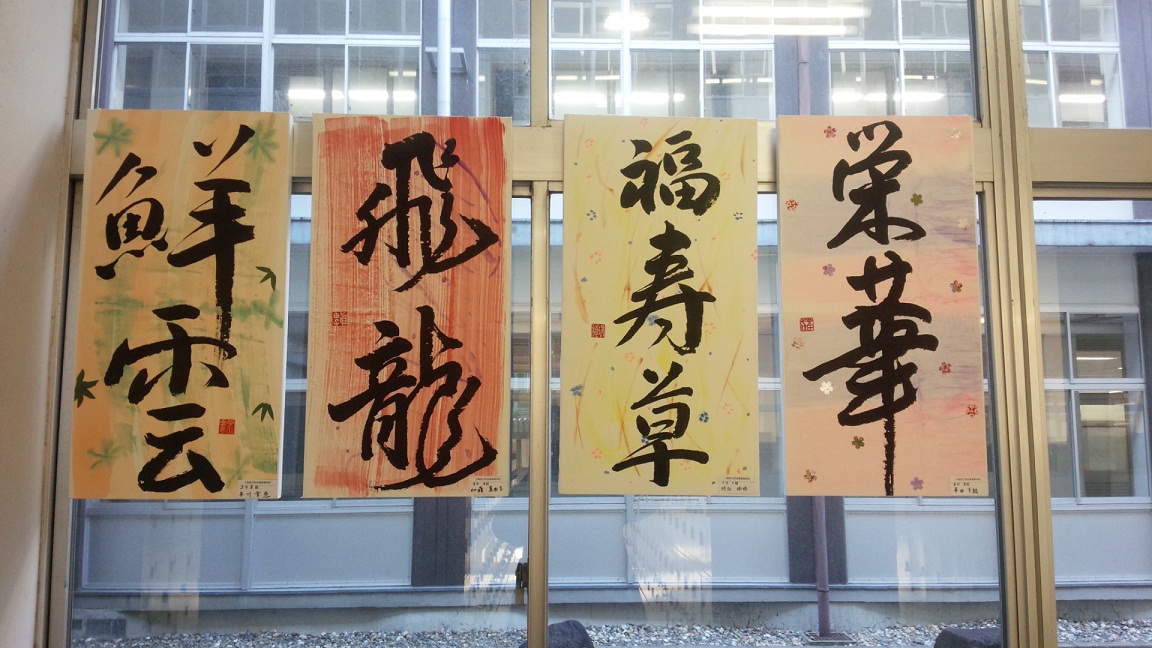 鮮雲
飛龍
福寿草
栄華